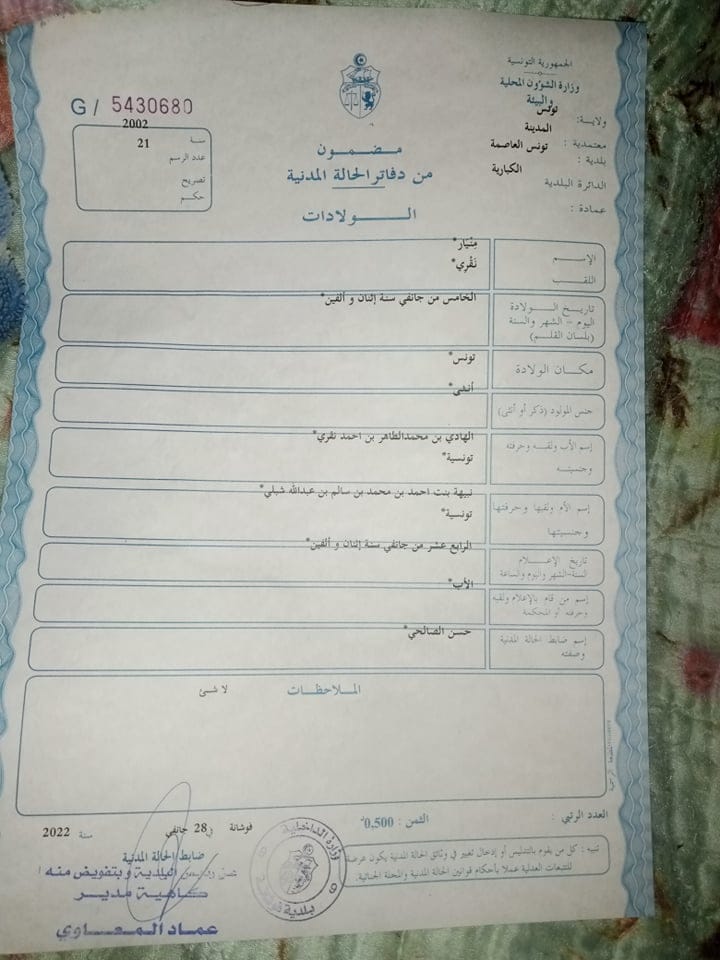 الجمهورية التونسية
وزارة الشؤون المحلية
والبيئة
ولاية: تونس
معتمدية : المدينة
بلدية : تونس العاصمة
الدائرة البلدية الكبارية
عمادة :
G / 5430680
سنة 2002
عدد الرسم 21
تصريح
حكم
مضمون
من دفاتر الحالة المدنية
الولادات
الإسم
مِنْيَار*
اللقب
نَقْرِي*
تاريخ الولادة
اليوم - الشهر والسنة
(بلسان القلم)
الخامس من جانفي سنة إثنان و ألفين*
مكان الولادة
تونس*
جنس المولود (ذكر أو أنثى)
أنثى*
إسم الأب ولقبه وحرفته
وجنسيته
الهادي بن محمدالطاهر بن احمد نقري*
تونسية*
إسم الأم ولقبها وحرفتها
وجنسيتها
نبيهة بنت احمد بن محمد بن سالم بن عبدالله شبلي*
تونسية*
تاريخ الإعلام
السنة-الشهر واليوم والساعة
الرابع عشر من جانفي سنة إثنان و ألفين*
إسم من قام بالإعلام ولقبه
وحرفته أو المحكمة
الأب*
إسم ضابط الحالة المدنية
وصفته
حسن الصالحي*
الملاحظات
لا شئ
العدد الرتبي :
الثمن : 0,500د
فوشانة في 28 جانفي سنة 2022
تنبيه : كل من يقوم بالتدليس أو إدخال تغيير في وثائق الحالة المدنية يكون عرضة
للتتبعات العدلية عملا بأحكام قوانين الحالة المدنية والمجلة الجنائية.
ضابط الحالة المدنية
عن رئيس البلدية وبتفويض منه
كاهية مدير
عماد المعاوي
وزارة الداخلية
بلدية فوشانة